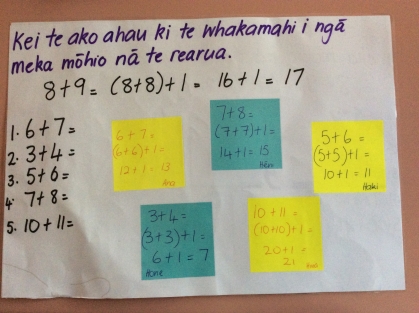 Kei te ako ahau ki te whakamahi i ngā
meka mōhio nā te rearua.
8+9= (8+8)+1= 16+1=17
1. 6+7=
2. 3+4=
3. 5+6=
4. 7+8=
5. 10+11=
6+7=
(6+6)+1=
12+1=13
Ana
7+8=
(7+7)+1=
14+1=15
5+6=
(5+5)+1=
10+1=11
3+4=
(3+3)+1=
6+1=7
Hone
10+11=
(10+10)+1=
20+1=
21